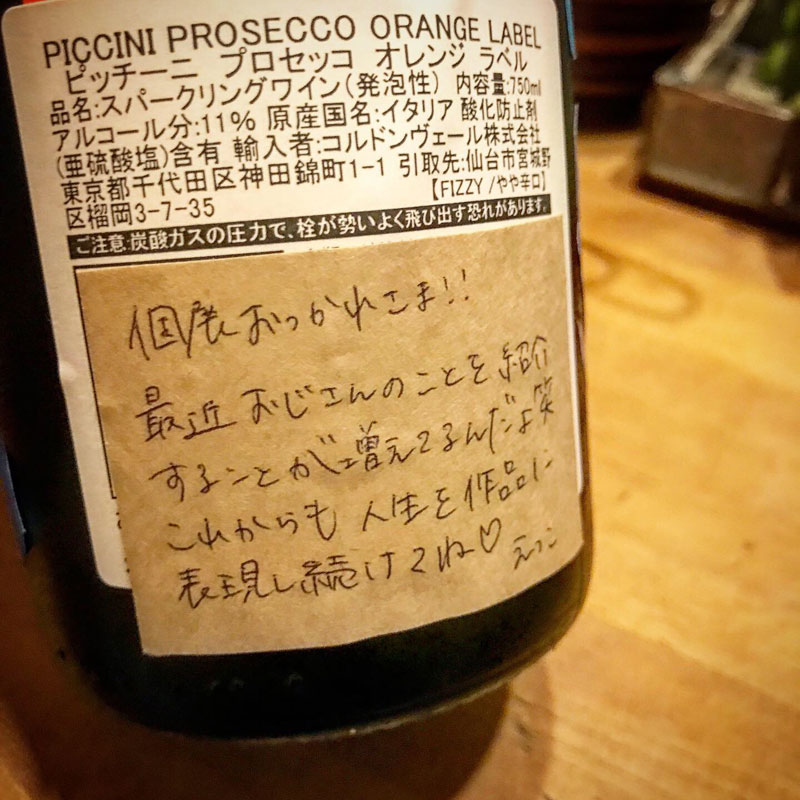 PICCINI PROSECCO ORANGE LABEL
ピッチーニ プロセッコ オレンジ ラベル
品名:スパークリングワイン(発泡性) 内容量:750ml
アルコール分:11% 原産国名:イタリア 酸化防止剤
(亜硫酸塩)含有 輸入者:コルドンヴェール株式会社
東京都千代田区神田錦町1-1 引取先:仙台市宮城野
区榴岡3-7-35 【FIZZY /やや辛口】
ご注意:炭酸ガスの圧力で、栓が勢いよく飛び出す恐れがあります。
個展おつかれさま!!
最近おじさんのことを紹介
することが増えてるんだよ笑
これからも人生を作品に
表現し続けてね♡ えつこ